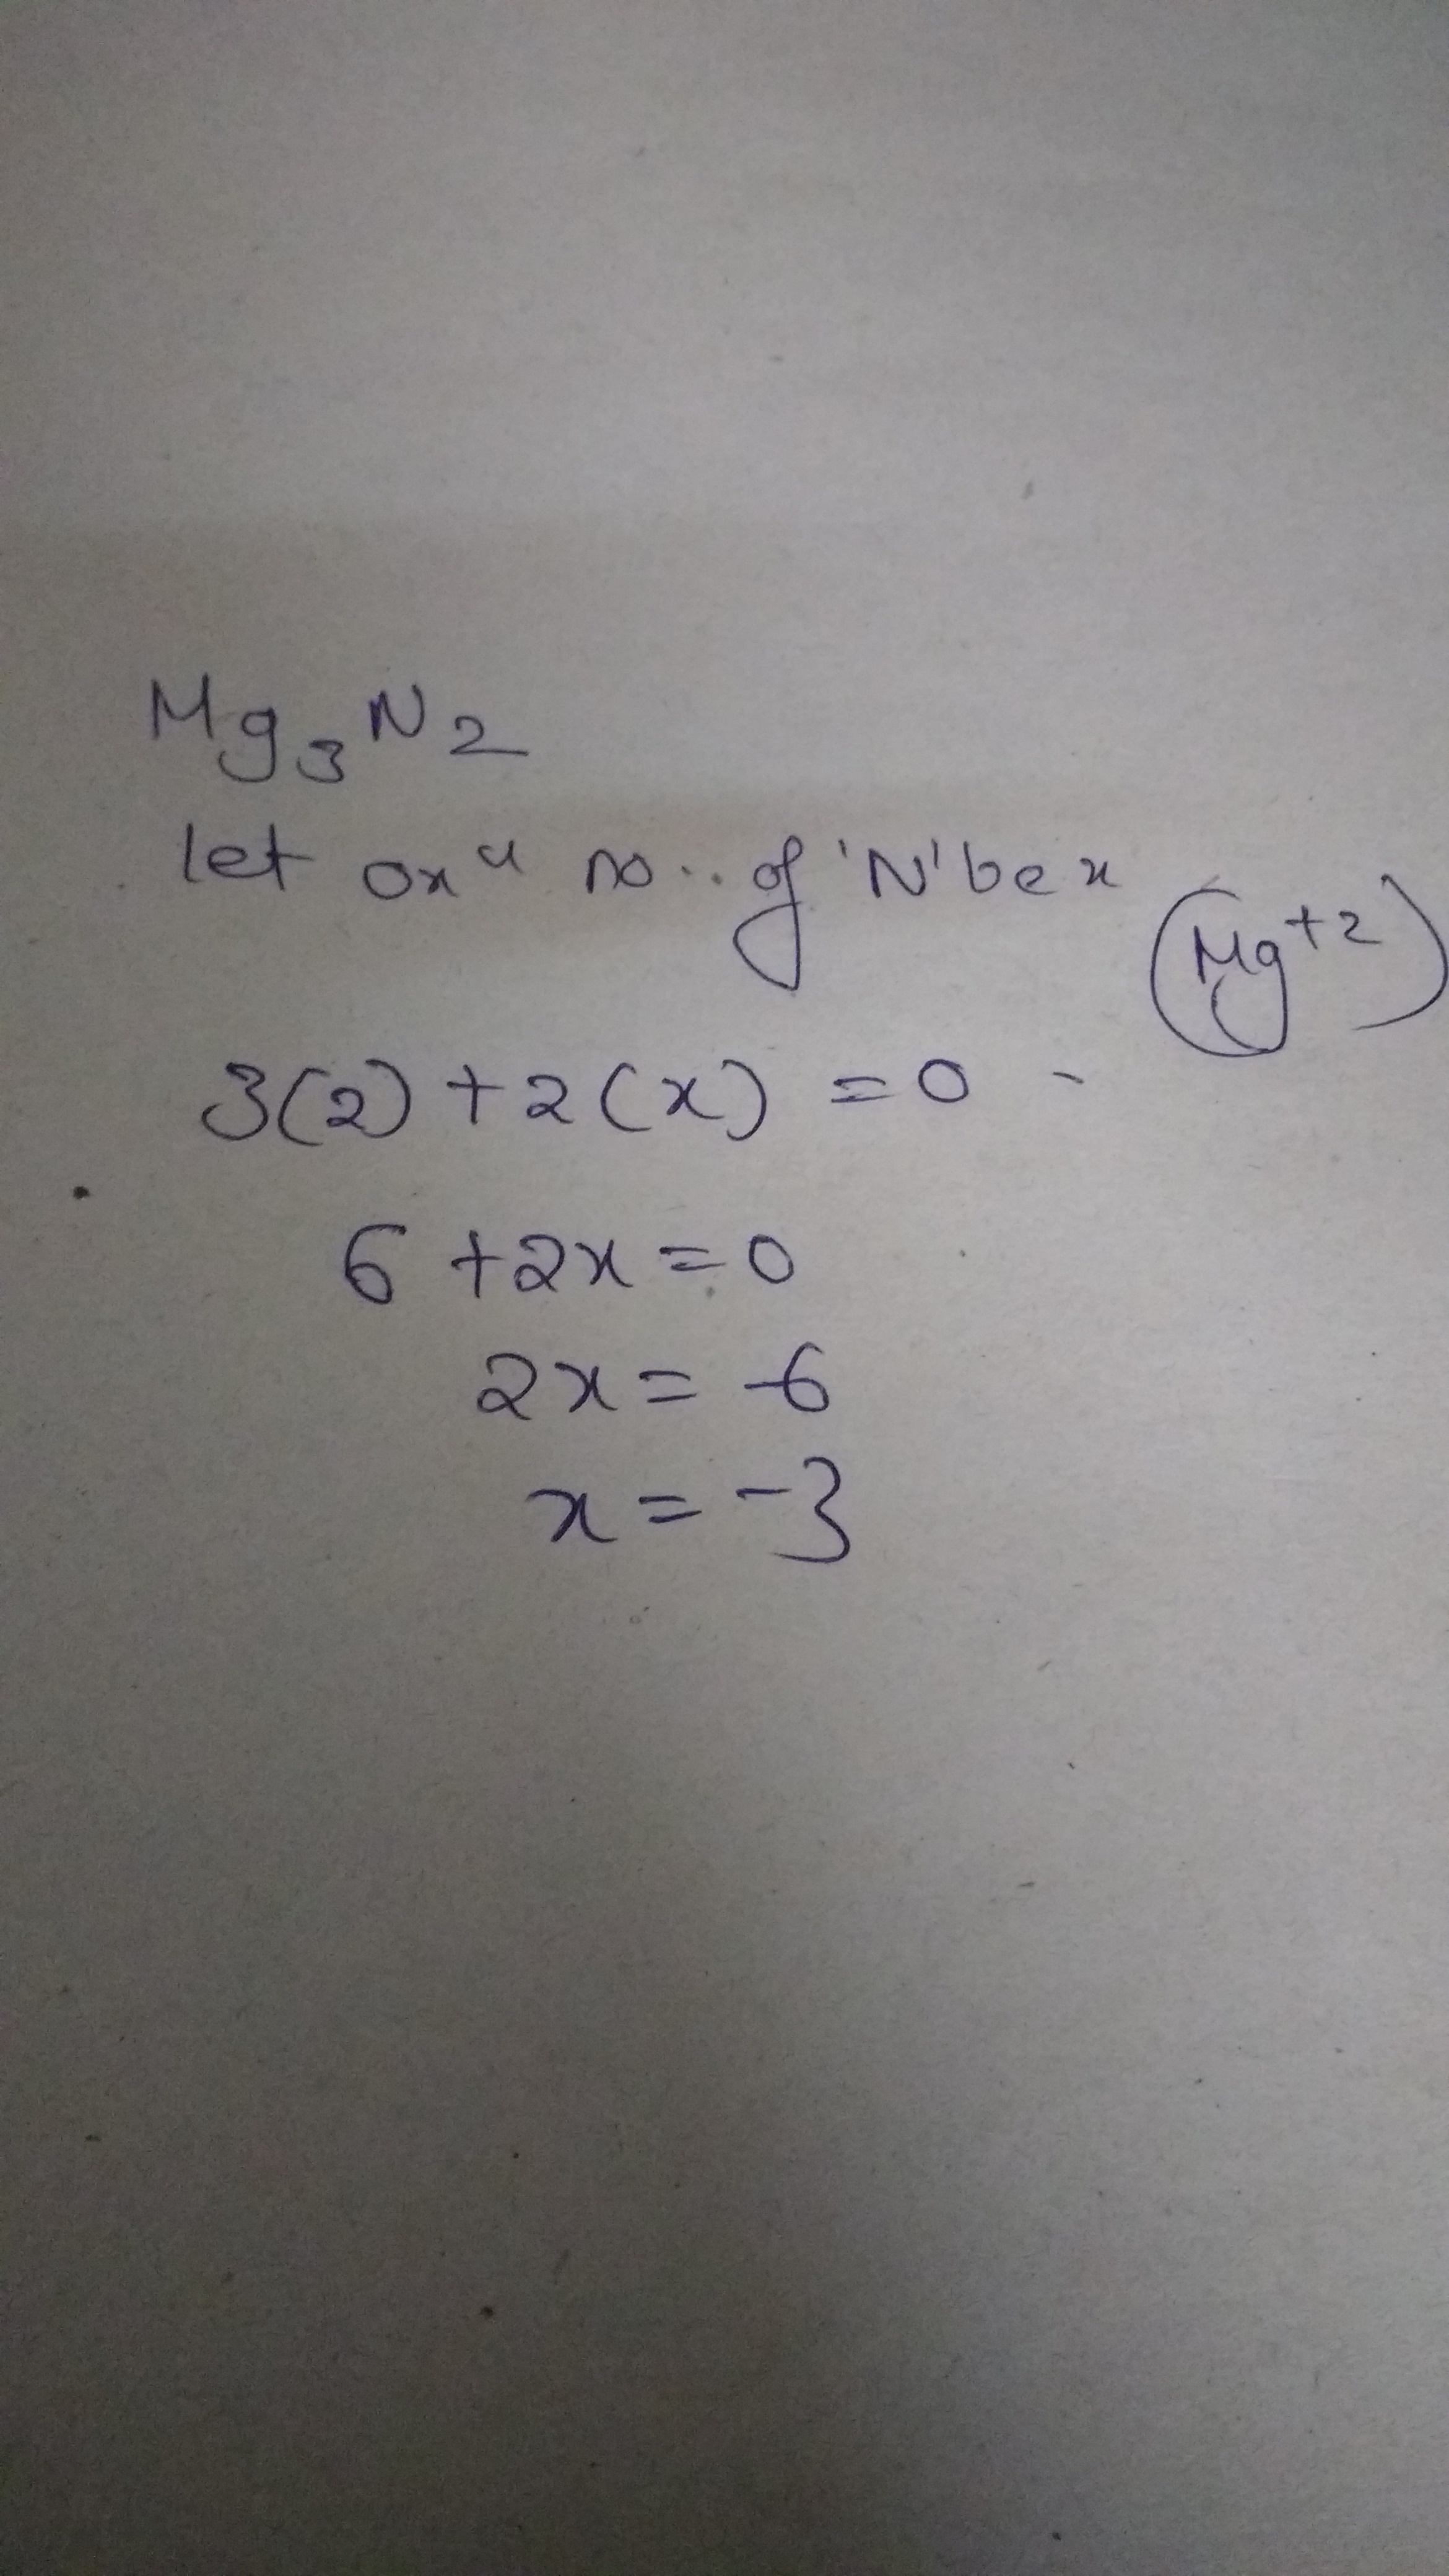 Mg₃N₂
let oxⁿ no. of 'N' be x
(Mg⁺²)
3(2) + 2(x) = 0
6 + 2x = 0
2x = -6
x = -3